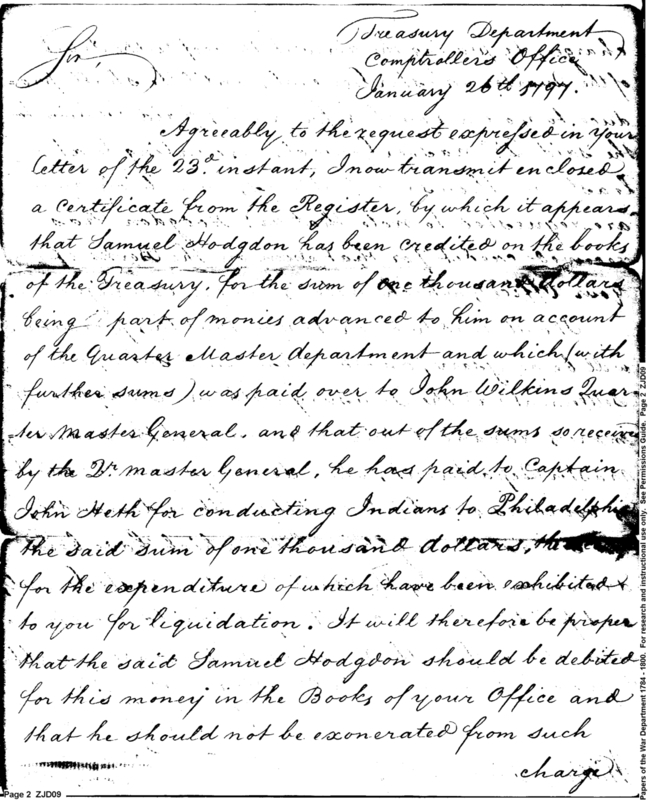 Treasury Department
Comptrollers Office
January 26th 1797.
Sir,
Agreeably to the request expressed in your
letter of the 23.d instant, I now transmit enclosed
a certificate from the Register, by which it appears
that Samuel Hodgdon has been credited on the books
of the Treasury, for the sum of one thousand dollars
being part of monies advanced to him on account
of the Quarter Master department and which (with
further sums) was paid over to John Wilkins Quar-
-ter Master General, and that out of the sums so receiv
by the Qr. master General, he has paid to Captain
John Heth for conducting Indians to Philadelphia
the said sum of one thousand dollars, the
for the expenditure of which have been exhibited
to you for liquidation. It will therefore be proper
that the said Samuel Hodgdon should be debited
for this money in the Books of your Office and
that he should not be exonerated from such
charge
Page 2 ZJD09
Papers of the War Department 1784 - 1800. For research and instructional use only. See Permissions Guide. Page 2 ZJD09